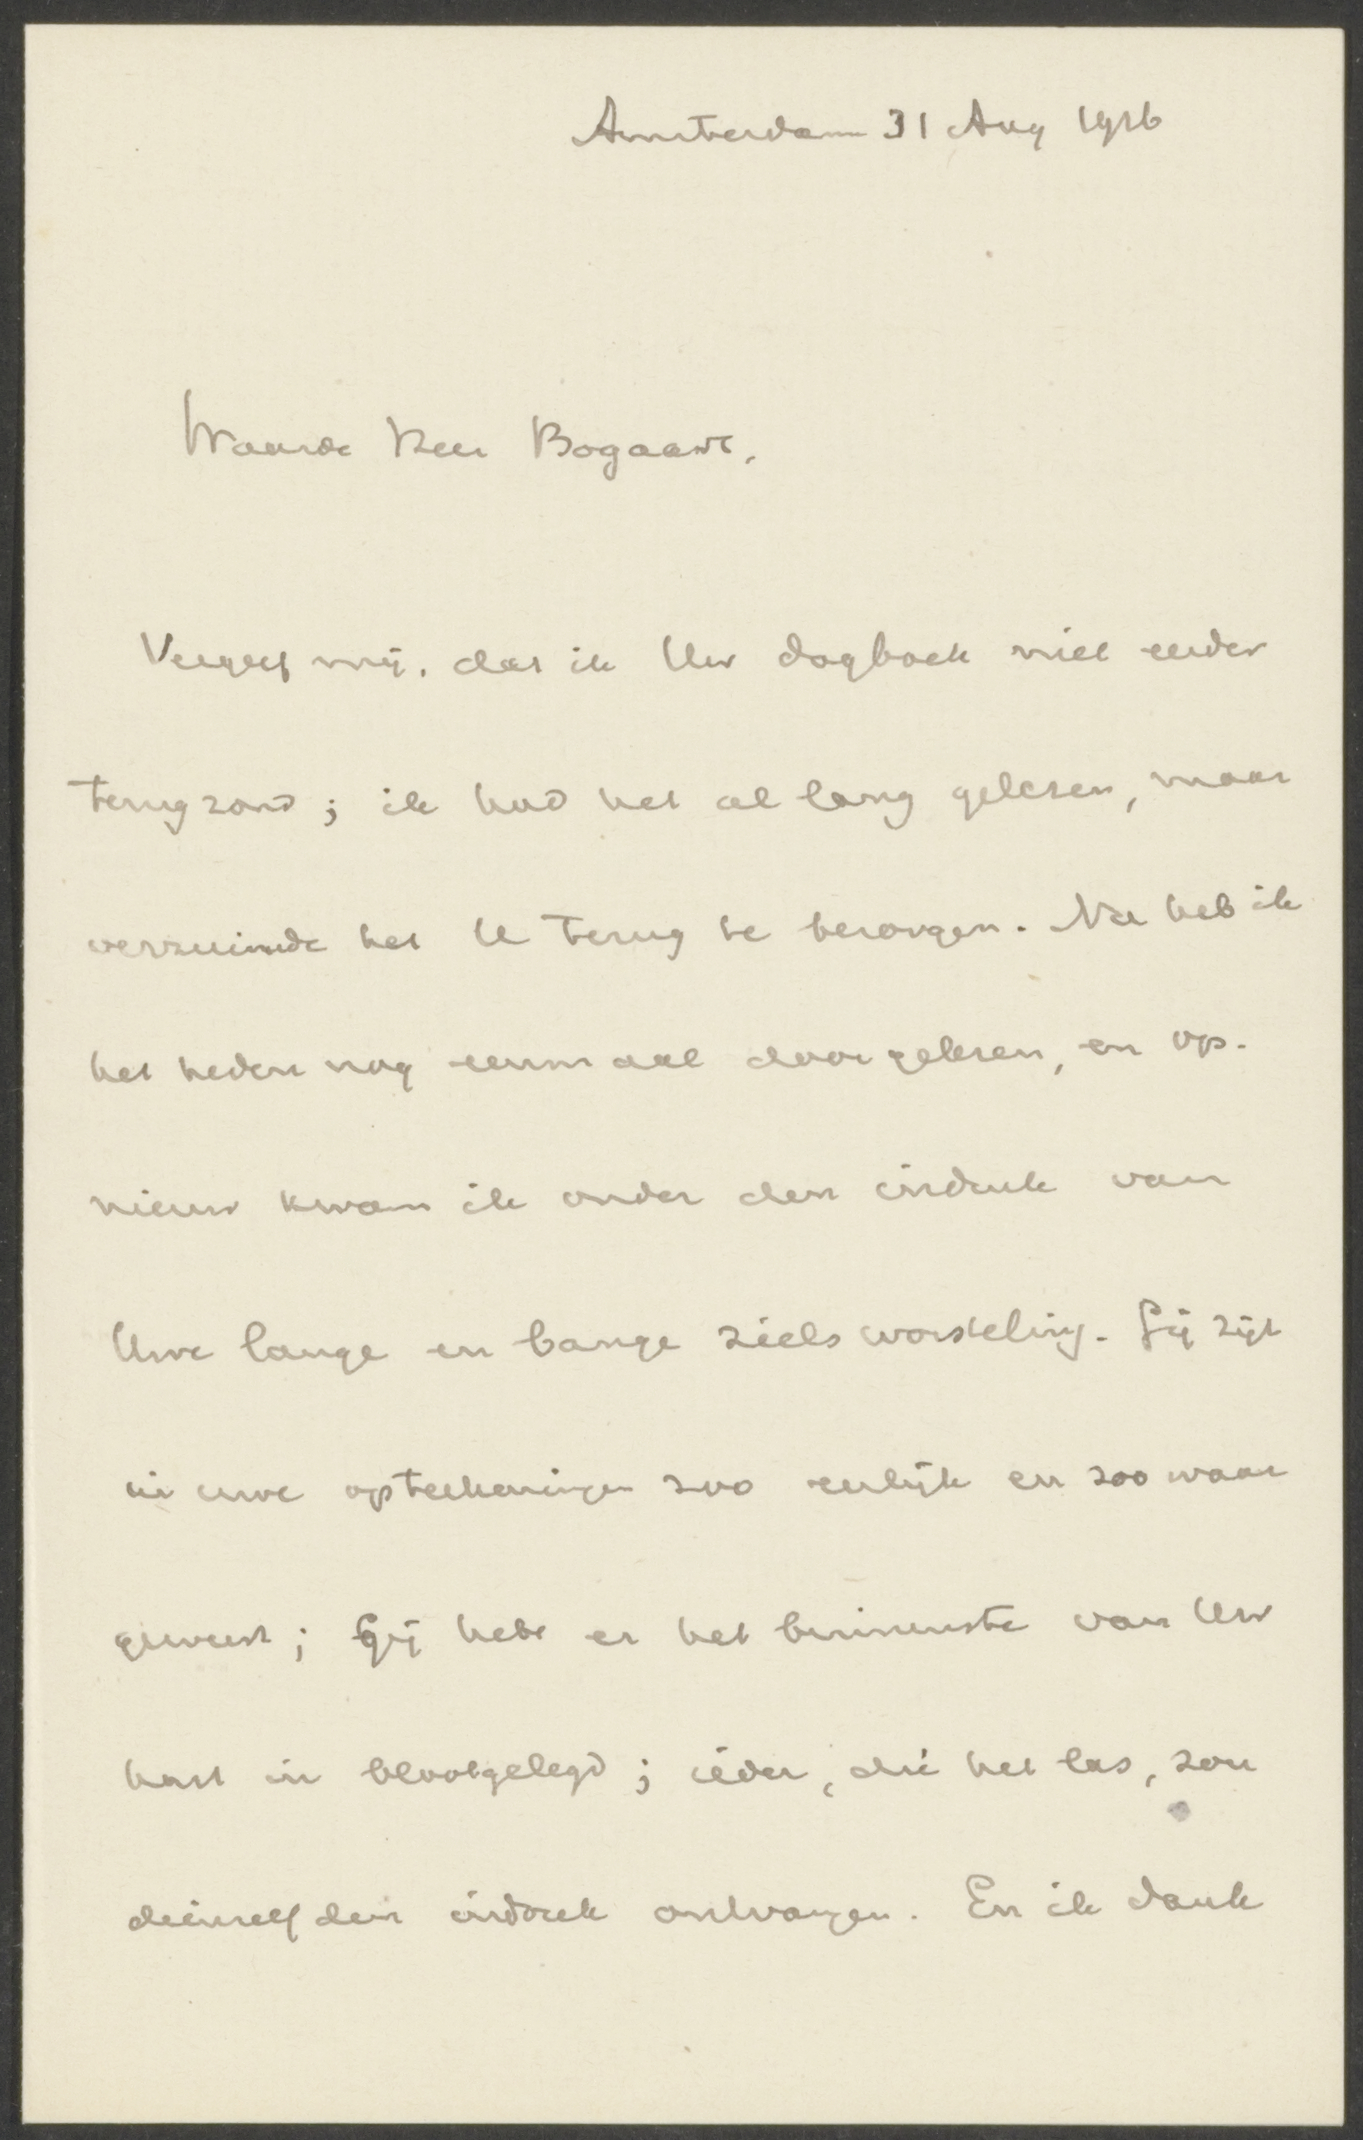 Amsterdam 31 Aug 1916
Waarde Heer Bogaard,
Vergeef mij, dat ik Uw dagboek niet eerder
terugzond; ik had het al lang gelezen, maar
verzuimde het U terug te bezorgen. Nu heb ik
het heden nog eenmaal doorgelezen, en op-
nieuw kwam ik onder den indruk van
Uwe lange en bange zielsworsteling. Gij zijt
in uwe opteekeningen zoo eerlijk en zoo waar
geweest; Gij hebt er het binnenste van Uw
hart in blootgelegd; ieder, die het las, zou
dienzelfden indruk ontvangen. En ik dank